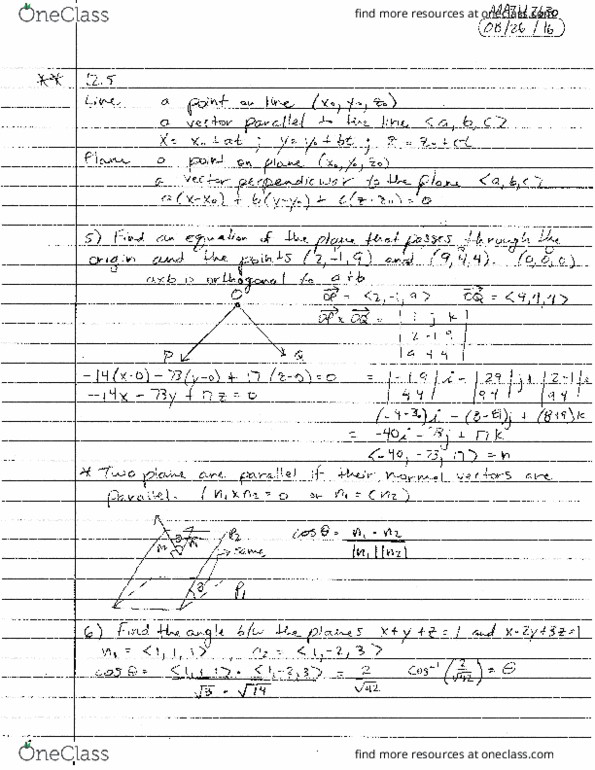 OneClass
find more resources at oneclass.com
08/26/16
** 12.5
Line a point on line (x₀, y₀, z₀)
a vector parallel to the line <a, b, c>
x = x₀ + at ; y = y₀ + bt ; z = z₀ + ct
Plane a point on plane (x₀, y₀, z₀)
a vector perpendicular to the plane <a, b, c>
a(x-x₀) + b(y-y₀) + c(z-z₀) = 0
5) Find an equation of the plane that passes through the
origin and the points (2, -1, 9) and (9, 4, 4). (0, 0, 0)
axb is orthogonal to a+b
O
OP = <2, -1, 9> OQ = <9, 4, 4>
OP x OQ = | i j k |
| 2 -1 9 |
| 9 4 4 |
P Q
-14(x-0) - 73(y-0) + 17(z-0) = 0 = |-1 9| i - |2 9| j + |2 -1|
-14x - 73y + 17z = 0 |4 4| |9 4| |9 4|
(-4-36)i - (8-81)j + (8+9)k
= -40i - 73j + 17k
<-40, -73, 17> = n
* Two plane are parallel if their normal vectors are
parallel. (n₁ x n₂ = 0 or n₁ = cn₂)
cosθ = n₁ · n₂
|n₁||n₂|
P2
same
P1
6) Find the angle b/w the planes x+y+z=1 and x-2y+3z=1
n₁ = <1, 1, 1> n₂ = <1, -2, 3>
cosθ = <1, 1, 1> · <1, -2, 3> = 2 cos⁻¹(2/√42) = θ
√3 · √14 √42
OneClass
find more resources at oneclass.com